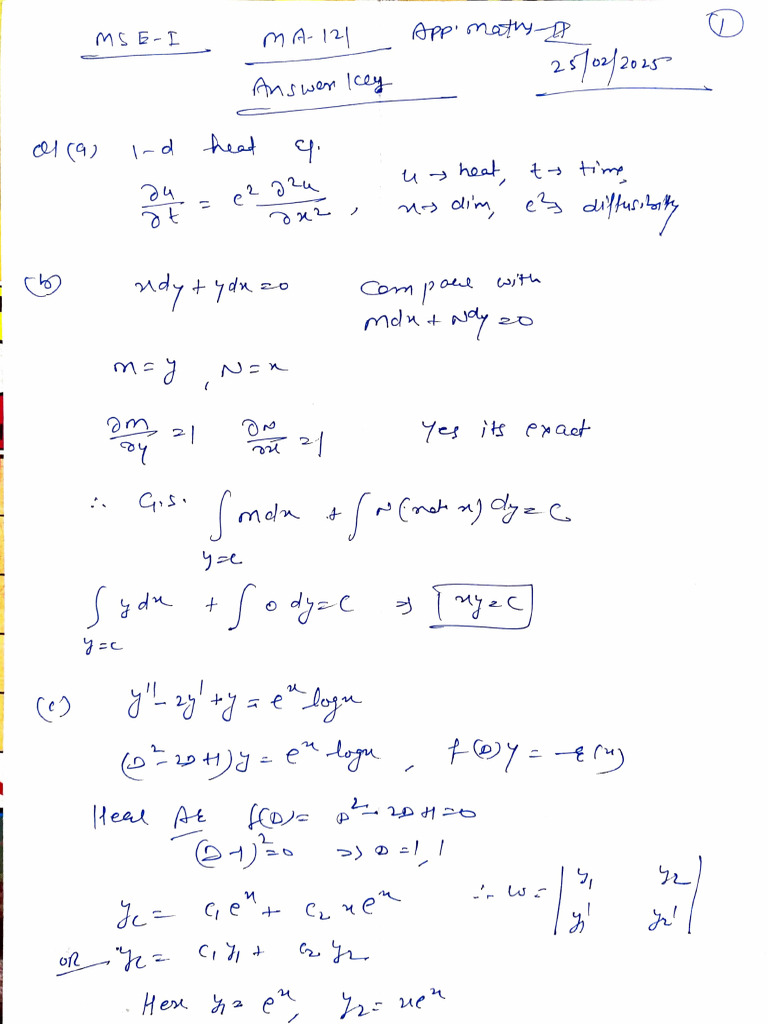 1
MSE-I MA-121 App. Maths-II
25/02/2025
Answer Key
Q1 (a) 1-d heat eq.
∂u/∂t = c² ∂²u/∂x² , u → heat, t → time,
x → dim, c² → diffusibility
(b) xdy + ydx = 0 Compare with
Mdx + Ndy = 0
M = y , N = x
∂M/∂y = 1 ∂N/∂x = 1 Yes its exact
∴ G.S. ∫ Mdx + ∫ N (not x) dy = C
y=c
∫ y dx + ∫ 0 dy = C ⇒ xy = C
y=c
(c) y'' - 2y' + y = eˣ log x
(D² - 2D + 1) y = eˣ log x , f(D) y = (x)
Here AE f(D) = D² - 2D + 1 = 0
(D - 1)² = 0 ⇒ D = 1, 1
yc = c₁ eˣ + c₂ x eˣ ∴ W = | y₁ y₂ |
| y₁' y₂' |
OR yc = c₁ y₁ + c₂ y₂
Here y₁ = eˣ, y₂ = x eˣ